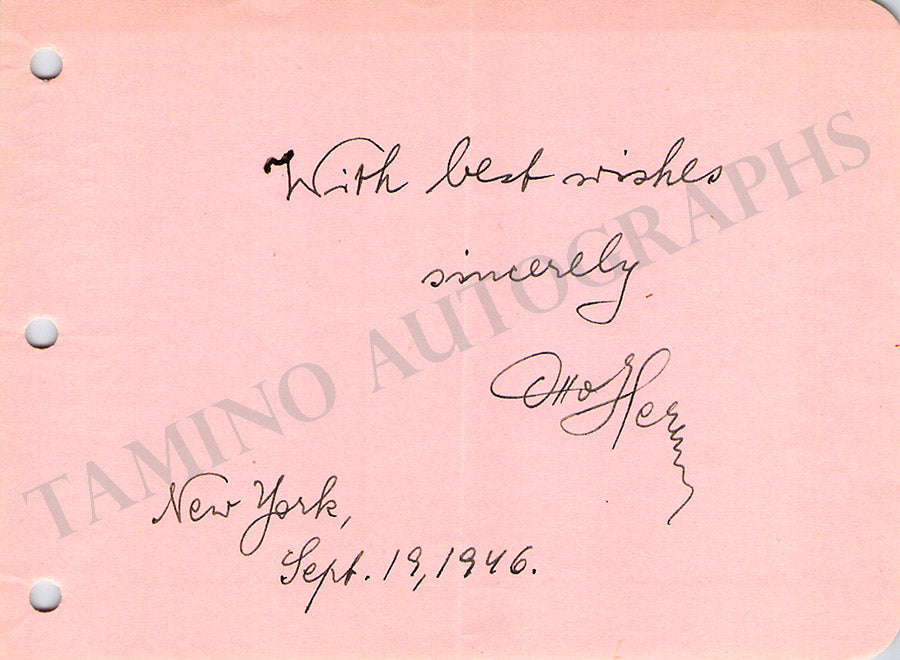 With best wishes
sincerely
Otto Herz
New York,
Sept. 19, 1946.
TAMINO AUTOGRAPHS